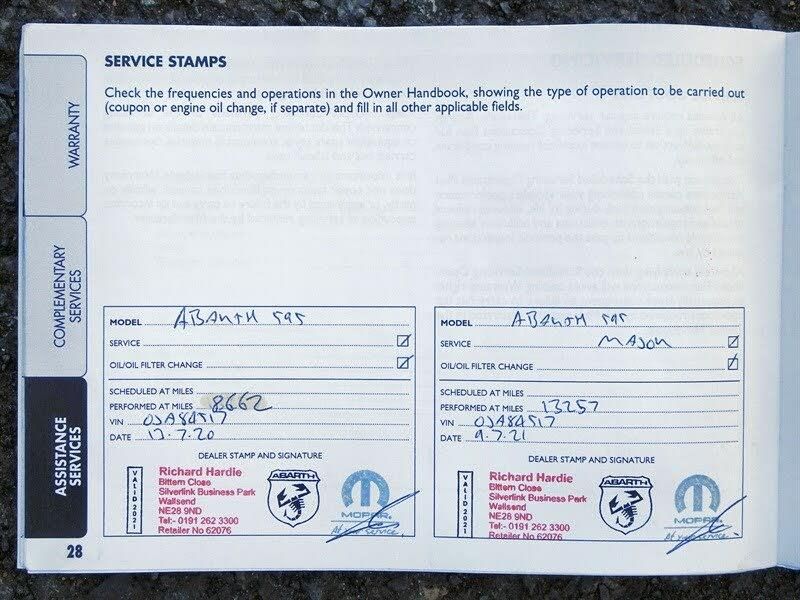 SERVICE STAMPS
Check the frequencies and operations in the Owner Handbook, showing the type of operation to be carried out
(coupon or engine oil change, if separate) and fill in all other applicable fields.
WARRANTY
COMPLEMENTARY
SERVICES
ASSISTANCE
SERVICES
MODEL ABARTH 595
SERVICE
OIL/OIL FILTER CHANGE
SCHEDULED AT MILES
PERFORMED AT MILES 8662
VIN OJA84517
DATE 13.7.20
DEALER STAMP AND SIGNATURE
VALID 2021
Richard Hardie
Bittern Close
Silverlink Business Park
Wallsend
NE28 9ND
Tel:- 0191 262 3300
Retailer No 62076
ABARTH
MOPAR
At your service.
MODEL ABARTH 595
SERVICE MAJOR
OIL/OIL FILTER CHANGE
SCHEDULED AT MILES
PERFORMED AT MILES 13257
VIN OJA84517
DATE 9.7.21
DEALER STAMP AND SIGNATURE
VALID 2021
Richard Hardie
Bittern Close
Silverlink Business Park
Wallsend
NE28 9ND
Tel:- 0191 262 3300
Retailer No 62076
ABARTH
MOPAR
At your service.
28